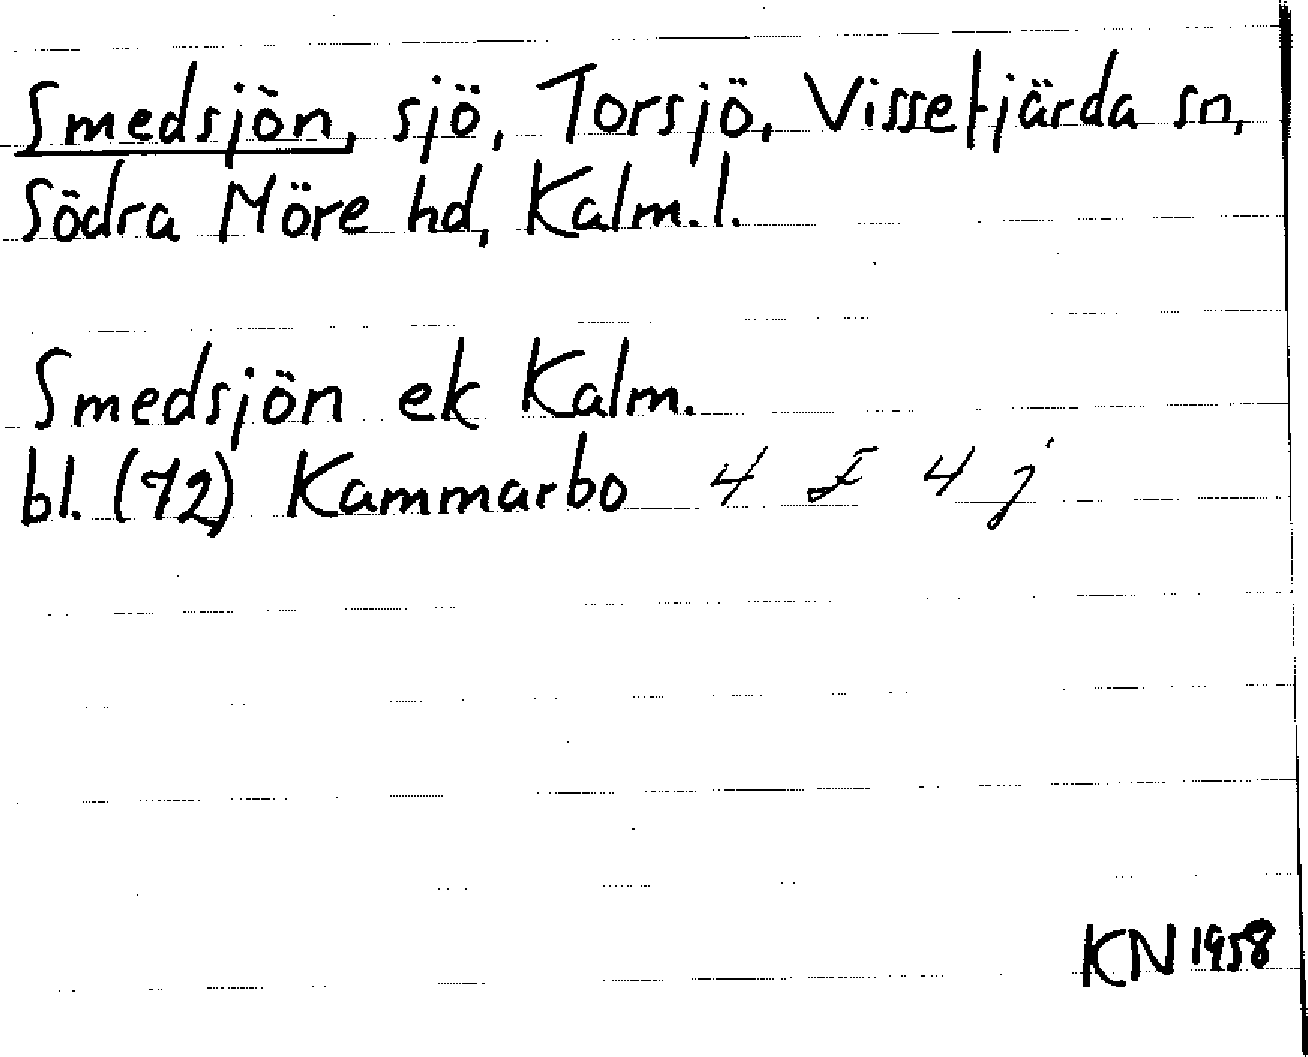 Smedsjön, sjö, Torsjö, Vissefjärda sn,
Södra Möre hd, Kalm. l.
Smedsjön ek Kalm.
bl. (72) Kammarbo 4 F 4 j
KN 1958